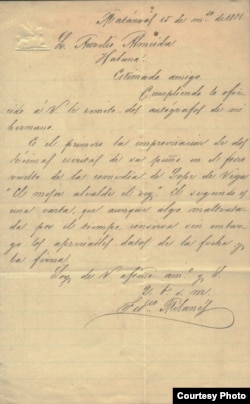 Matanzas 15 de mzo de 1881.
Sr. Aurelio Almeida
Habana.
Estimado amigo
Cumpliendo lo ofre-
cido á V. le remito dos autógrafos de mi
hermano.
Es el primero la improvisacion de dos
décimas escritas de su puño en el forro
vuelto de la comedia de Lope de Vega
"El mejor alcalde el rey". El segundo es
una carta, que aunque algo maltrata-
da por el tiempo, conserva sin embar-
go los apreciables datos de la fecha y
la firma.
Soy de V. afmo amo y S.
Q. B. S. M.
Fedco Milanés
Courtesy Photo